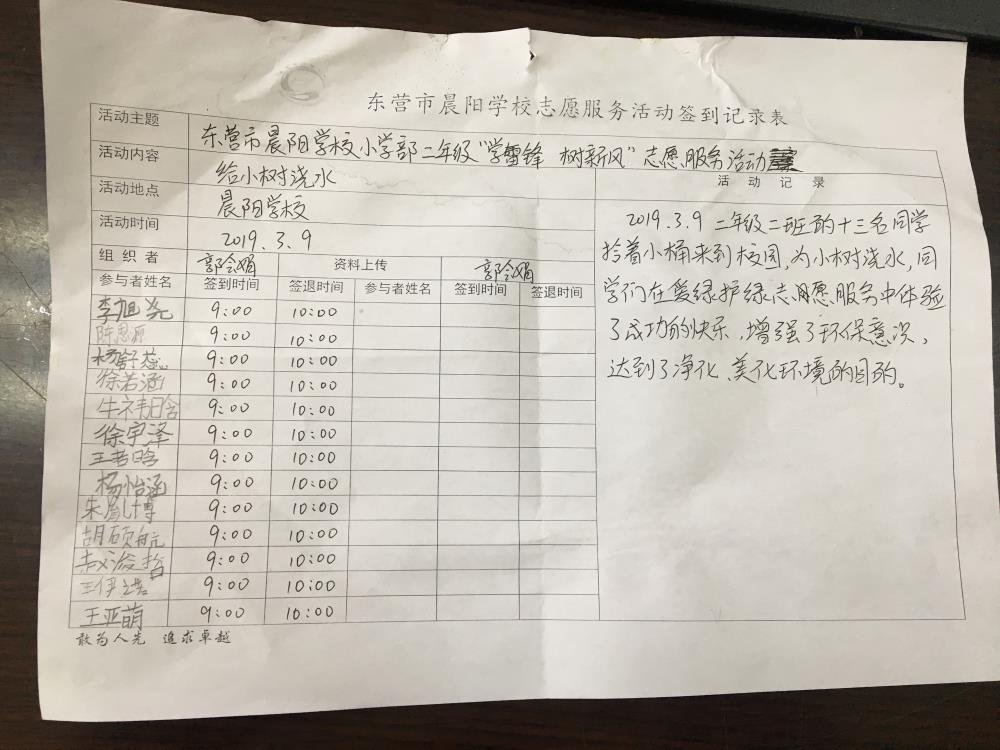 东营市晨阳学校志愿服务活动签到记录表
活动主题 东营市晨阳学校小学部二年级“学雷锋 树新风”志愿服务活动
活动内容 给小树浇水
活动地点 晨阳学校
活动时间 2019.3.9
组织者 郭会娟 资料上传 郭会娟
参与者姓名 签到时间 签退时间 参与者姓名 签到时间 签退时间
李旭尧 9:00 10:00
陈思源 9:00 10:00
杨舒蕊 9:00 10:00
徐若涵 9:00 10:00
牛祎晗 9:00 10:00
徐宇泽 9:00 10:00
王若晗 9:00 10:00
杨怡涵 9:00 10:00
朱胤博 9:00 10:00
胡硕航 9:00 10:00
赵浚哲 9:00 10:00
王伊 9:00 10:00
王亚萌 9:00 10:00
活动记录
2019.3.9 二年级二班的十三名同学
拎着小桶来到校园,为小树浇水,同
学们在爱绿护绿志愿服务中体验
了成功的快乐,增强了环保意识,
达到了净化、美化环境的目的。
敢为人先 追求卓越